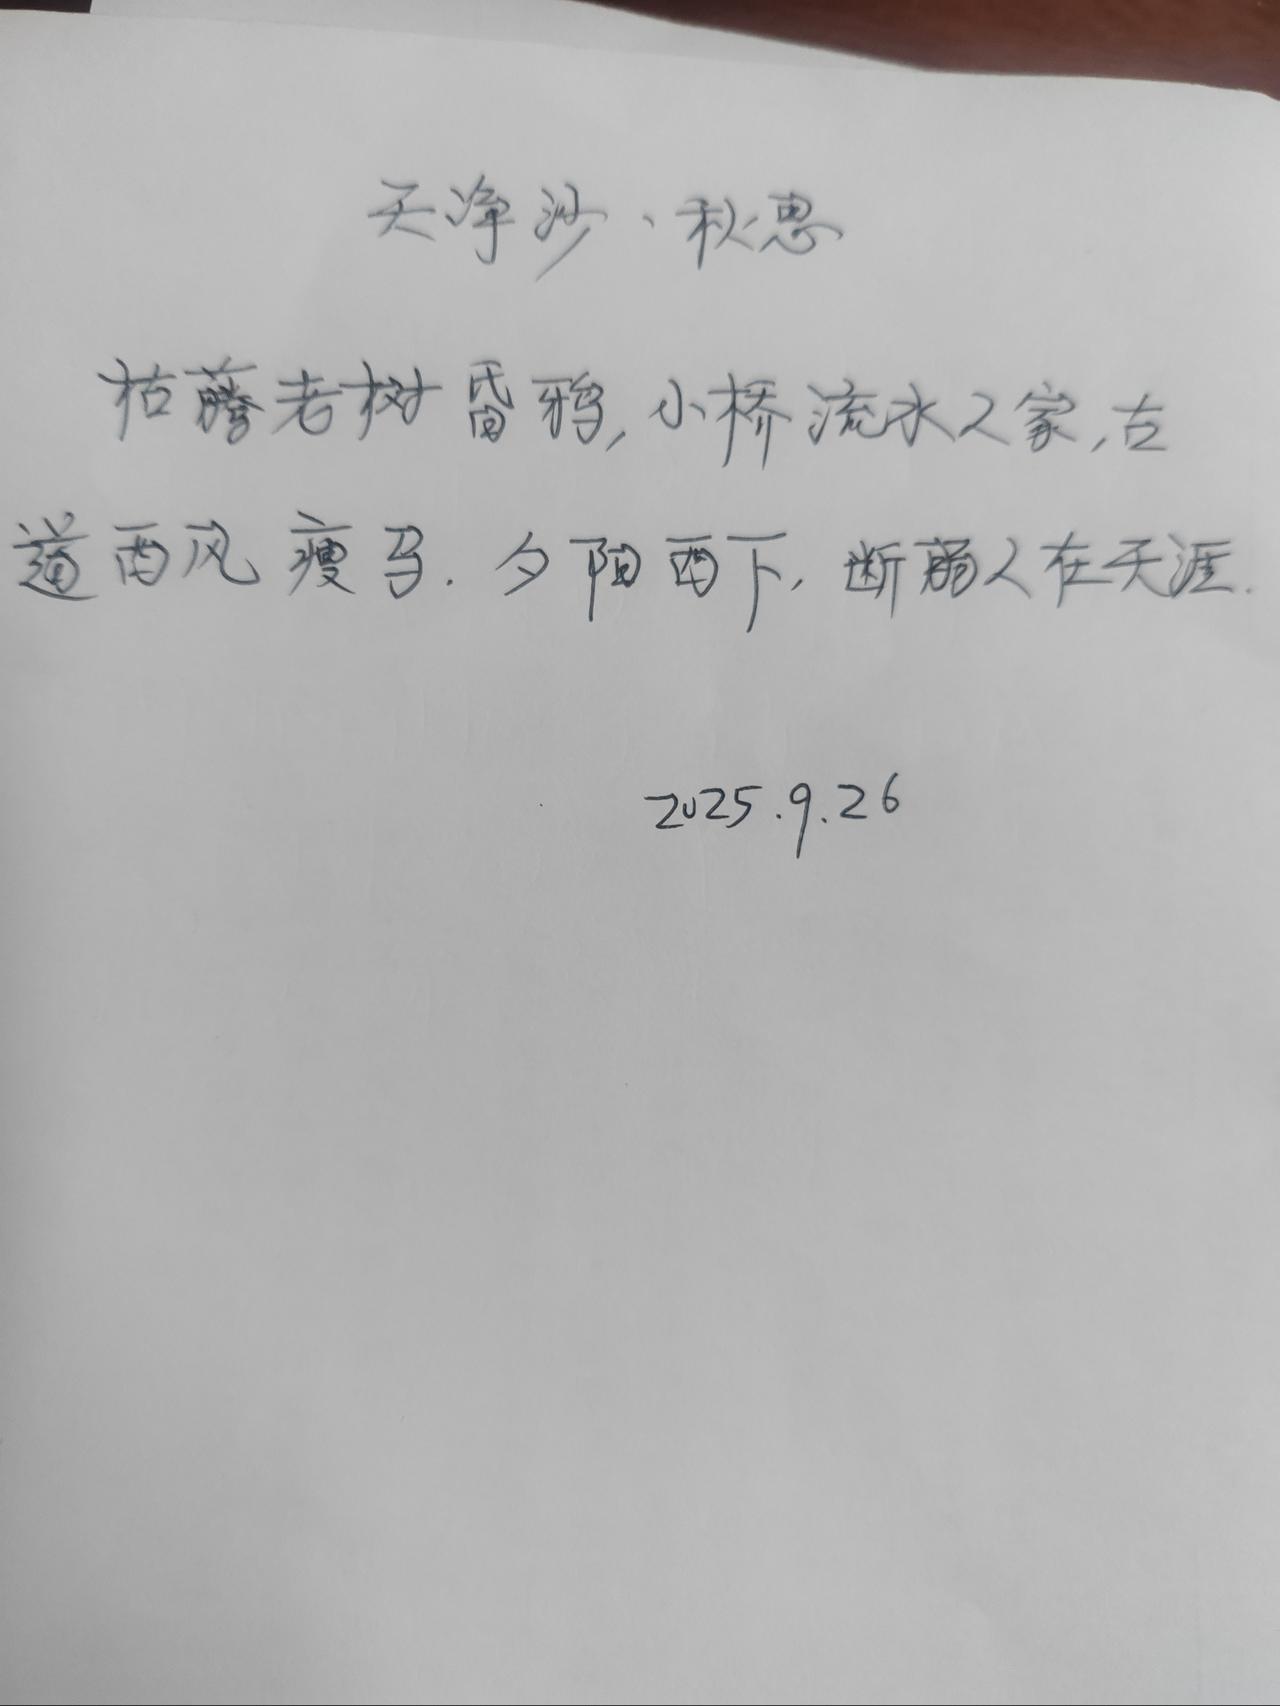 天净沙、秋思
枯藤老树昏鸦,小桥流水人家,古
道西风瘦马.夕阳西下,断肠人在天涯.
2025.9.26